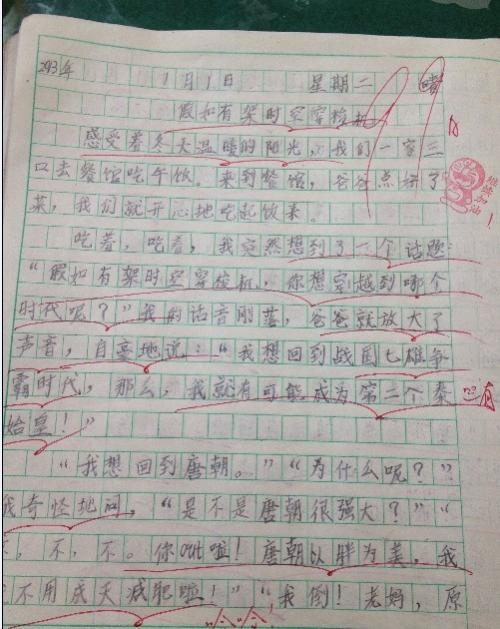 2013年 1月1日 星期二 晴
假如有架时空穿梭机
感受着冬天温暖的阳光，我们一家三
口去餐馆吃午饭。来到餐馆，爸爸点好了
菜，我们就开心地吃起饭来。
吃着，吃着，我突然想到了一个话题：
“假如有架时空穿梭机，你想穿越到哪个
时代呢？”我的话音刚落，爸爸就放大了
声音，自豪地说：“我想回到战国七雄争
霸时代，那么，我就有可能成为第二个秦
始皇！”
“我想回到唐朝。”“为什么呢？”
我奇怪地问，“是不是唐朝很强大？”“
，不，不。你out啦！唐朝以胖为美，我
不用成天减肥啦！”“我倒！老妈，原